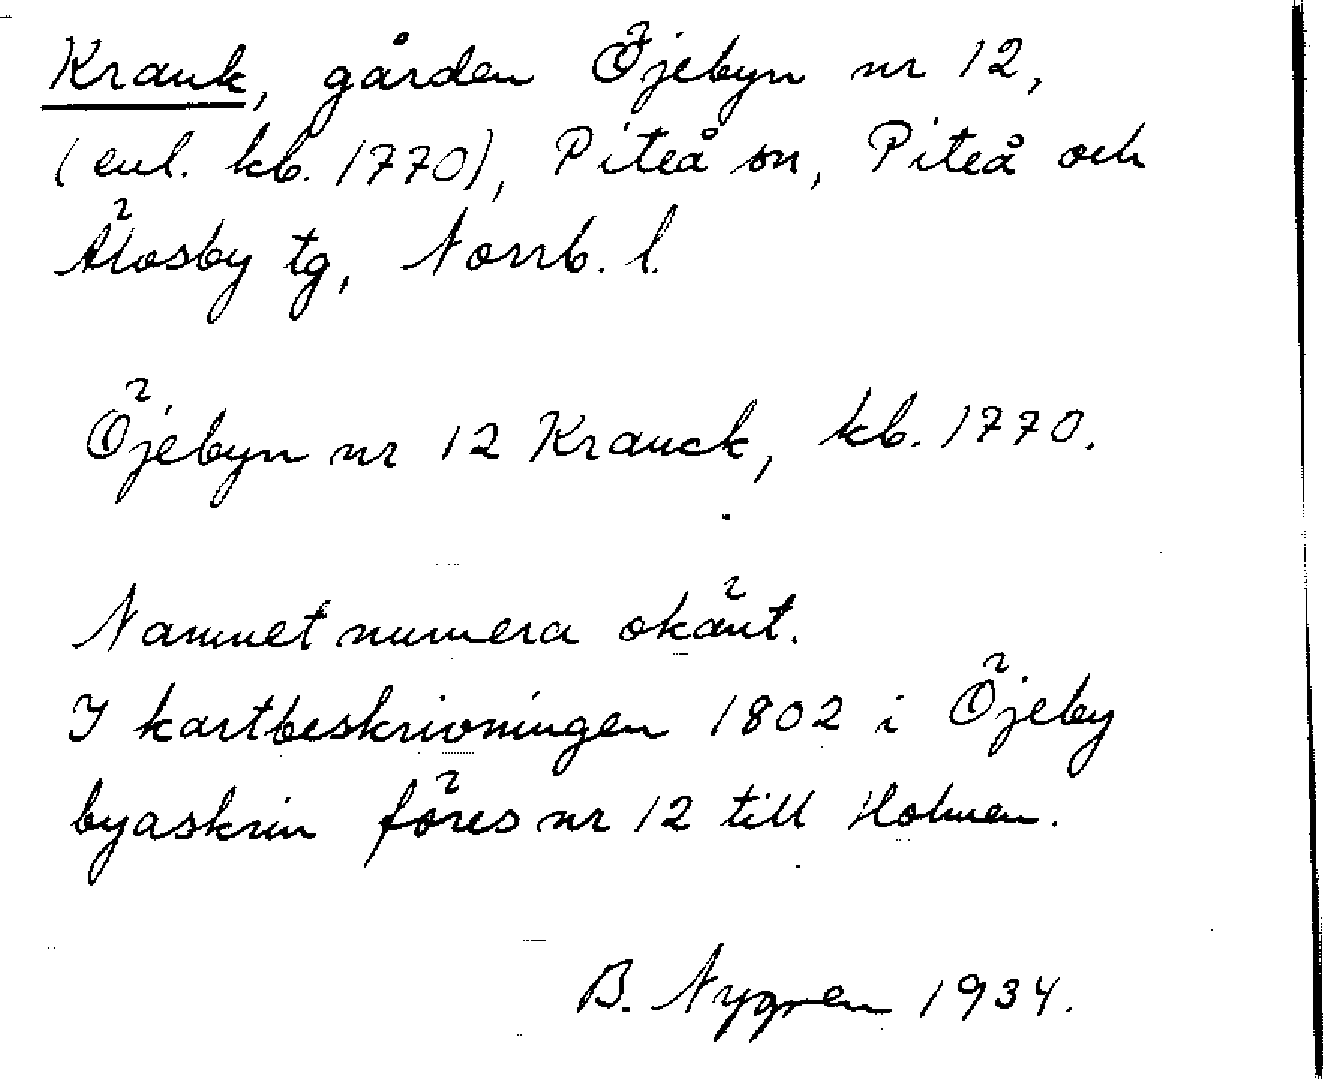 Krank, gården Öjebyn nr 12,
(enl. kb. 1770), Piteå sn, Piteå och
Älvsby tg, Norrb. l.
Öjebyn nr 12 Kranck, kb. 1770.
Namnet numera okänt.
I kartbeskrivningen 1802 i Öjeby
byaskrin föres nr 12 till Holmen.
B. Nygren 1934.